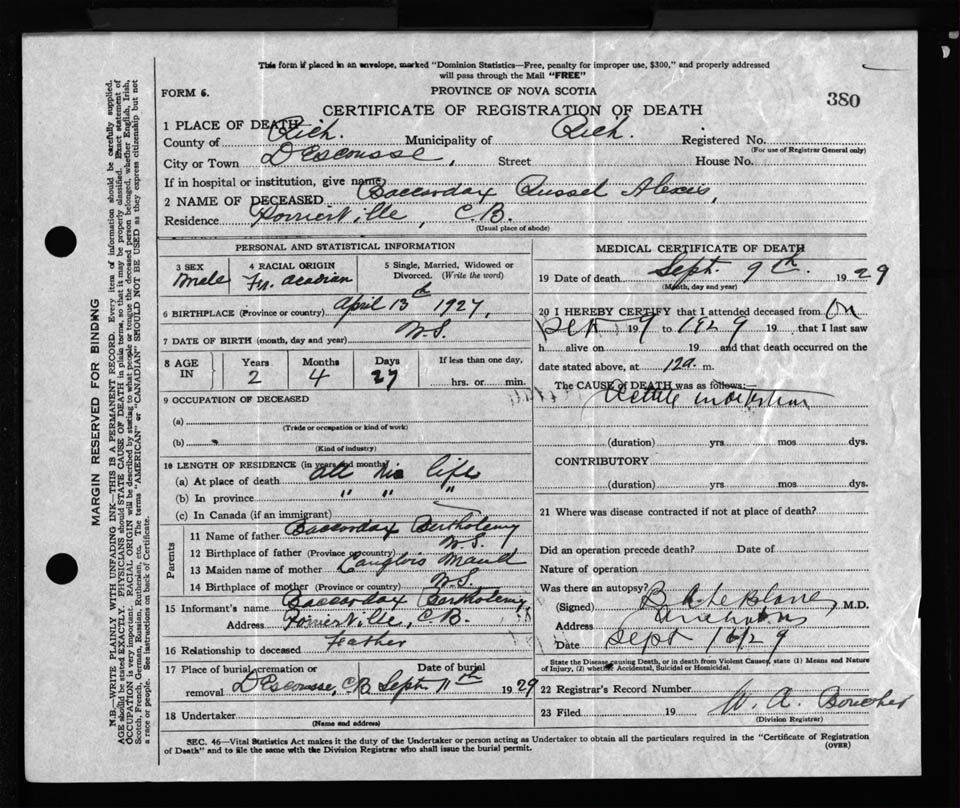 This form if placed in an envelope, marked "Dominion Statistics—Free, penalty for improper use, $300," and properly addressed
will pass through the Mail "FREE"
FORM 6.
PROVINCE OF NOVA SCOTIA
380
CERTIFICATE OF REGISTRATION OF DEATH
1 PLACE OF DEATH
County of Rich. Municipality of Rich. Registered No.
(For use of Registrar General only)
City or Town D'Escousse, Street House No.
If in hospital or institution, give name
2 NAME OF DECEASED Baccardax Russel Alexis,
Residence Poirierville, C.B.
(Usual place of abode)
PERSONAL AND STATISTICAL INFORMATION
3 SEX Male
4 RACIAL ORIGIN Fr. Acadian
5 Single, Married, Widowed or Divorced. (Write the word)
6 BIRTHPLACE (Province or country) April 13th 1927,
7 DATE OF BIRTH (month, day and year) N.S.
8 AGE IN Years 2 Months 4 Days 27 If less than one day, hrs. or min.
9 OCCUPATION OF DECEASED
(a)
(Trade or occupation or kind of work)
(b)
(Kind of industry)
10 LENGTH OF RESIDENCE (in years and months)
(a) At place of death all his life
(b) In province " " "
(c) In Canada (if an immigrant)
Parents
11 Name of father Baccardax Bartholemy
12 Birthplace of father (Province or country) N.S.
13 Maiden name of mother Langlois Maud
14 Birthplace of mother (Province or country) N.S.
15 Informant's name Baccardax Bartholemy
Address Poirierville, C.B.
16 Relationship to deceased Feather
17 Place of burial, cremation or removal D'Escousse, C.B. Date of burial Sept. 11th 1929
18 Undertaker
(Name and address)
MEDICAL CERTIFICATE OF DEATH
19 Date of death Sept. 9th. 1929
(Month, day and year)
20 I HEREBY CERTIFY that I attended deceased from On
Sept 19 9 to 1929 19 , that I last saw
h alive on 19 and that death occurred on the
date stated above, at 12 a. m.
The CAUSE of DEATH was as follows:—
(duration) yrs. mos. dys.
CONTRIBUTORY
(duration) yrs. mos. dys.
21 Where was disease contracted if not at place of death?
Did an operation precede death? Date of
Nature of operation
Was there an autopsy?
(Signed) M.D.
Address
Date Sept 16/29
State the Disease causing Death, or in death from Violent Causes, state (1) Means and Nature
of Injury, (2) whether Accidental, Suicidal or Homicidal.
22 Registrar's Record Number
23 Filed 19 W. A. Boucher
(Division Registrar)
SEC. 46—Vital Statistics Act makes it the duty of the Undertaker or person acting as Undertaker to obtain all the particulars required in the "Certificate of Registration
of Death" and to file the same with the Division Registrar who shall issue the burial permit.
(OVER)
MARGIN RESERVED FOR BINDING
N.B.—WRITE PLAINLY WITH UNFADING INK—THIS IS A PERMANENT RECORD. Every item of information should be carefully supplied.
AGE should be stated EXACTLY. PHYSICIANS should STATE CAUSE OF DEATH in plain terms, so that it may be properly classified. Exact statement of
OCCUPATION is very important. RACIAL ORIGIN will be described by stating to what people or tongue the deceased person belonged, whether English, Irish,
Scotch, French, German, Russian, Ruthenian, etc. The terms "AMERICAN" or "CANADIAN" SHOULD NOT BE USED as they express citizenship but not
a race or people. See instructions on back of Certificate.